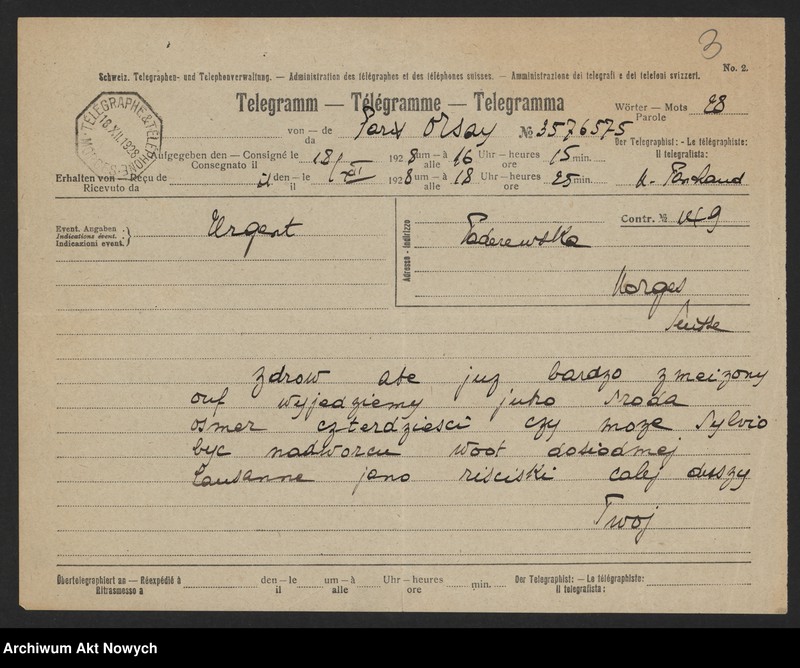 3
No. 2.
Schweiz. Telegraphen- und Telephonverwaltung. — Administration des télégraphes et des téléphones suisses. — Amministrazione dei telegrafi e dei telefoni svizzeri.
TÉLÉGRAPHE & TÉLÉPHONE
18.XII.1928
MORGES
Telegramm — Télégramme — Telegramma
Wörter — Mots 28
Parole
von — de Paris Orsay № 3576575
da
Der Telegraphist: - Le télégraphiste:
Il telegrafista:
Aufgegeben den — Consigné le 18/XII 1928 um — à 16 Uhr — heures 15 min.
Consegnato il alle ore
Erhalten von — Reçu de den — le 1928 um — à 18 Uhr — heures 25 min.
Ricevuto da il alle ore
Event. Angaben
Indications évent.
Indicazioni event.
Urgent
Adresse - Indirizzo
Contr. №
Paderewska
Morges
Suisse
zdrow ale juz bardzo zmeizony
ouf wyjedziemy jutro sroda
osmer czterdziesci czy moze Sylvio
byc nadworcu woot dosiodmej
Lausanne jano risciski calej duszy
Twoj
Übertelegraphiert an — Réexpédié à den — le um — à Uhr — heures min. Der Telegraphist: - Le télégraphiste:
Ritrasmesso a il alle ore Il telegrafista:
Archiwum Akt Nowych